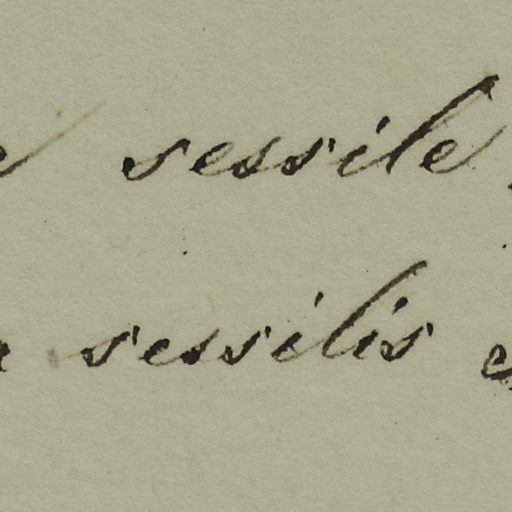 sessile
sessilis